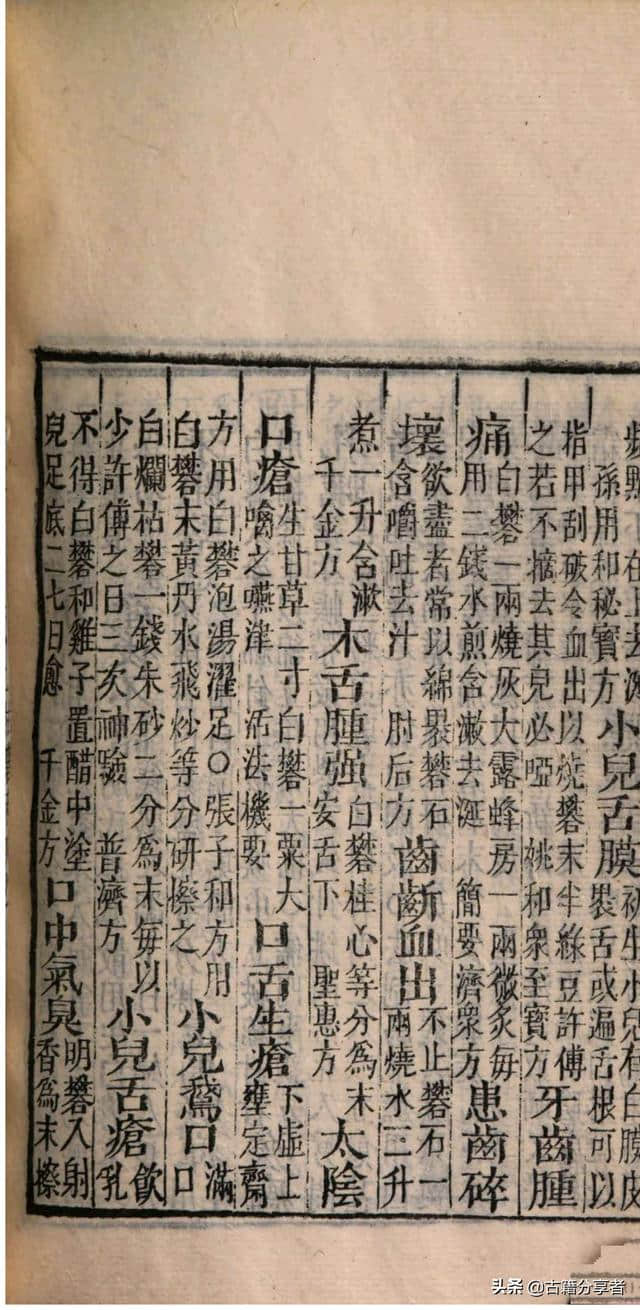 在上去涎
孫用和秘寶方
小兒舌膜
初生小兒有白膜皮
裝舌或遍舌根可以
指甲刮破令血出以燒礬末半綠豆許傅
之若不摘去其兒必啞 姚和衆至寶方
牙齒腫
痛
白礬一兩燒灰大露蜂房一兩微炙每
用二錢水煎含漱去涎 簡要濟衆方
患齒碎
壞
欲盡者常以綿裹礬石
含嚼吐去汁 肘后方
齒齗血出
不止礬石一
兩燒水三升
煮一升含漱
千金方
木舌腫强
白礬桂心等分為末
安舌下 聖惠方
太陰
口瘡
生甘草二寸白礬一粟大
噙之嚥津 活法機要
口舌生瘡
下虛上
壅定齋
方用白礬泡湯濯足○張子和方用
白礬末黃丹水飛炒等分研擦之
小兒鵞口
滿
口
白爛枯礬一錢朱砂二分為末每以
少許傅之日三次神驗 普濟方
小兒舌瘡
飲
乳
不得白礬和雞子置醋中塗
兒足底二七日愈 千金方
口中氣臭
明礬入射
香為末擦
头条 @古籍分享者